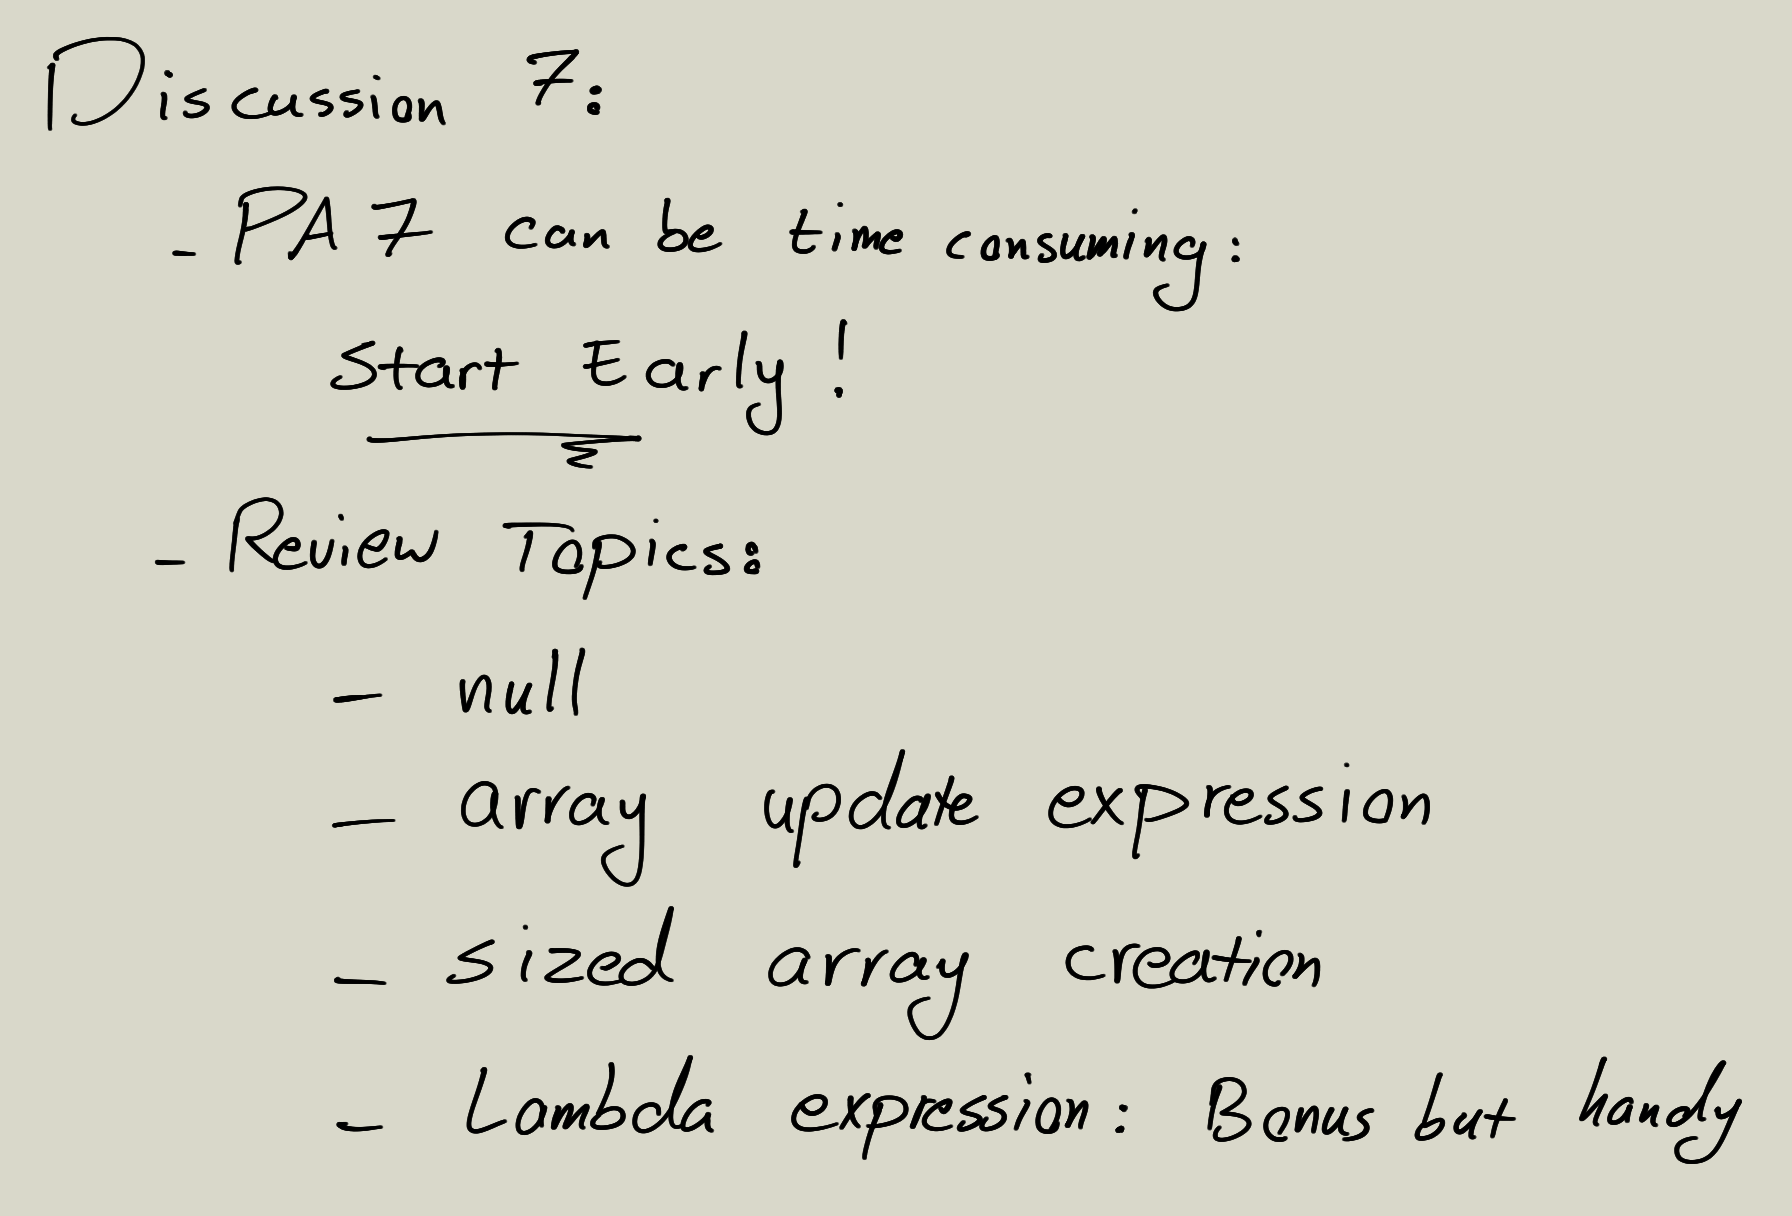 Discussion 7:
- PA 7 can be time consuming:
Start Early!
- Review Topics:
- null
- array update expression
- sized array creation
- Lambda expression: Bonus but handy